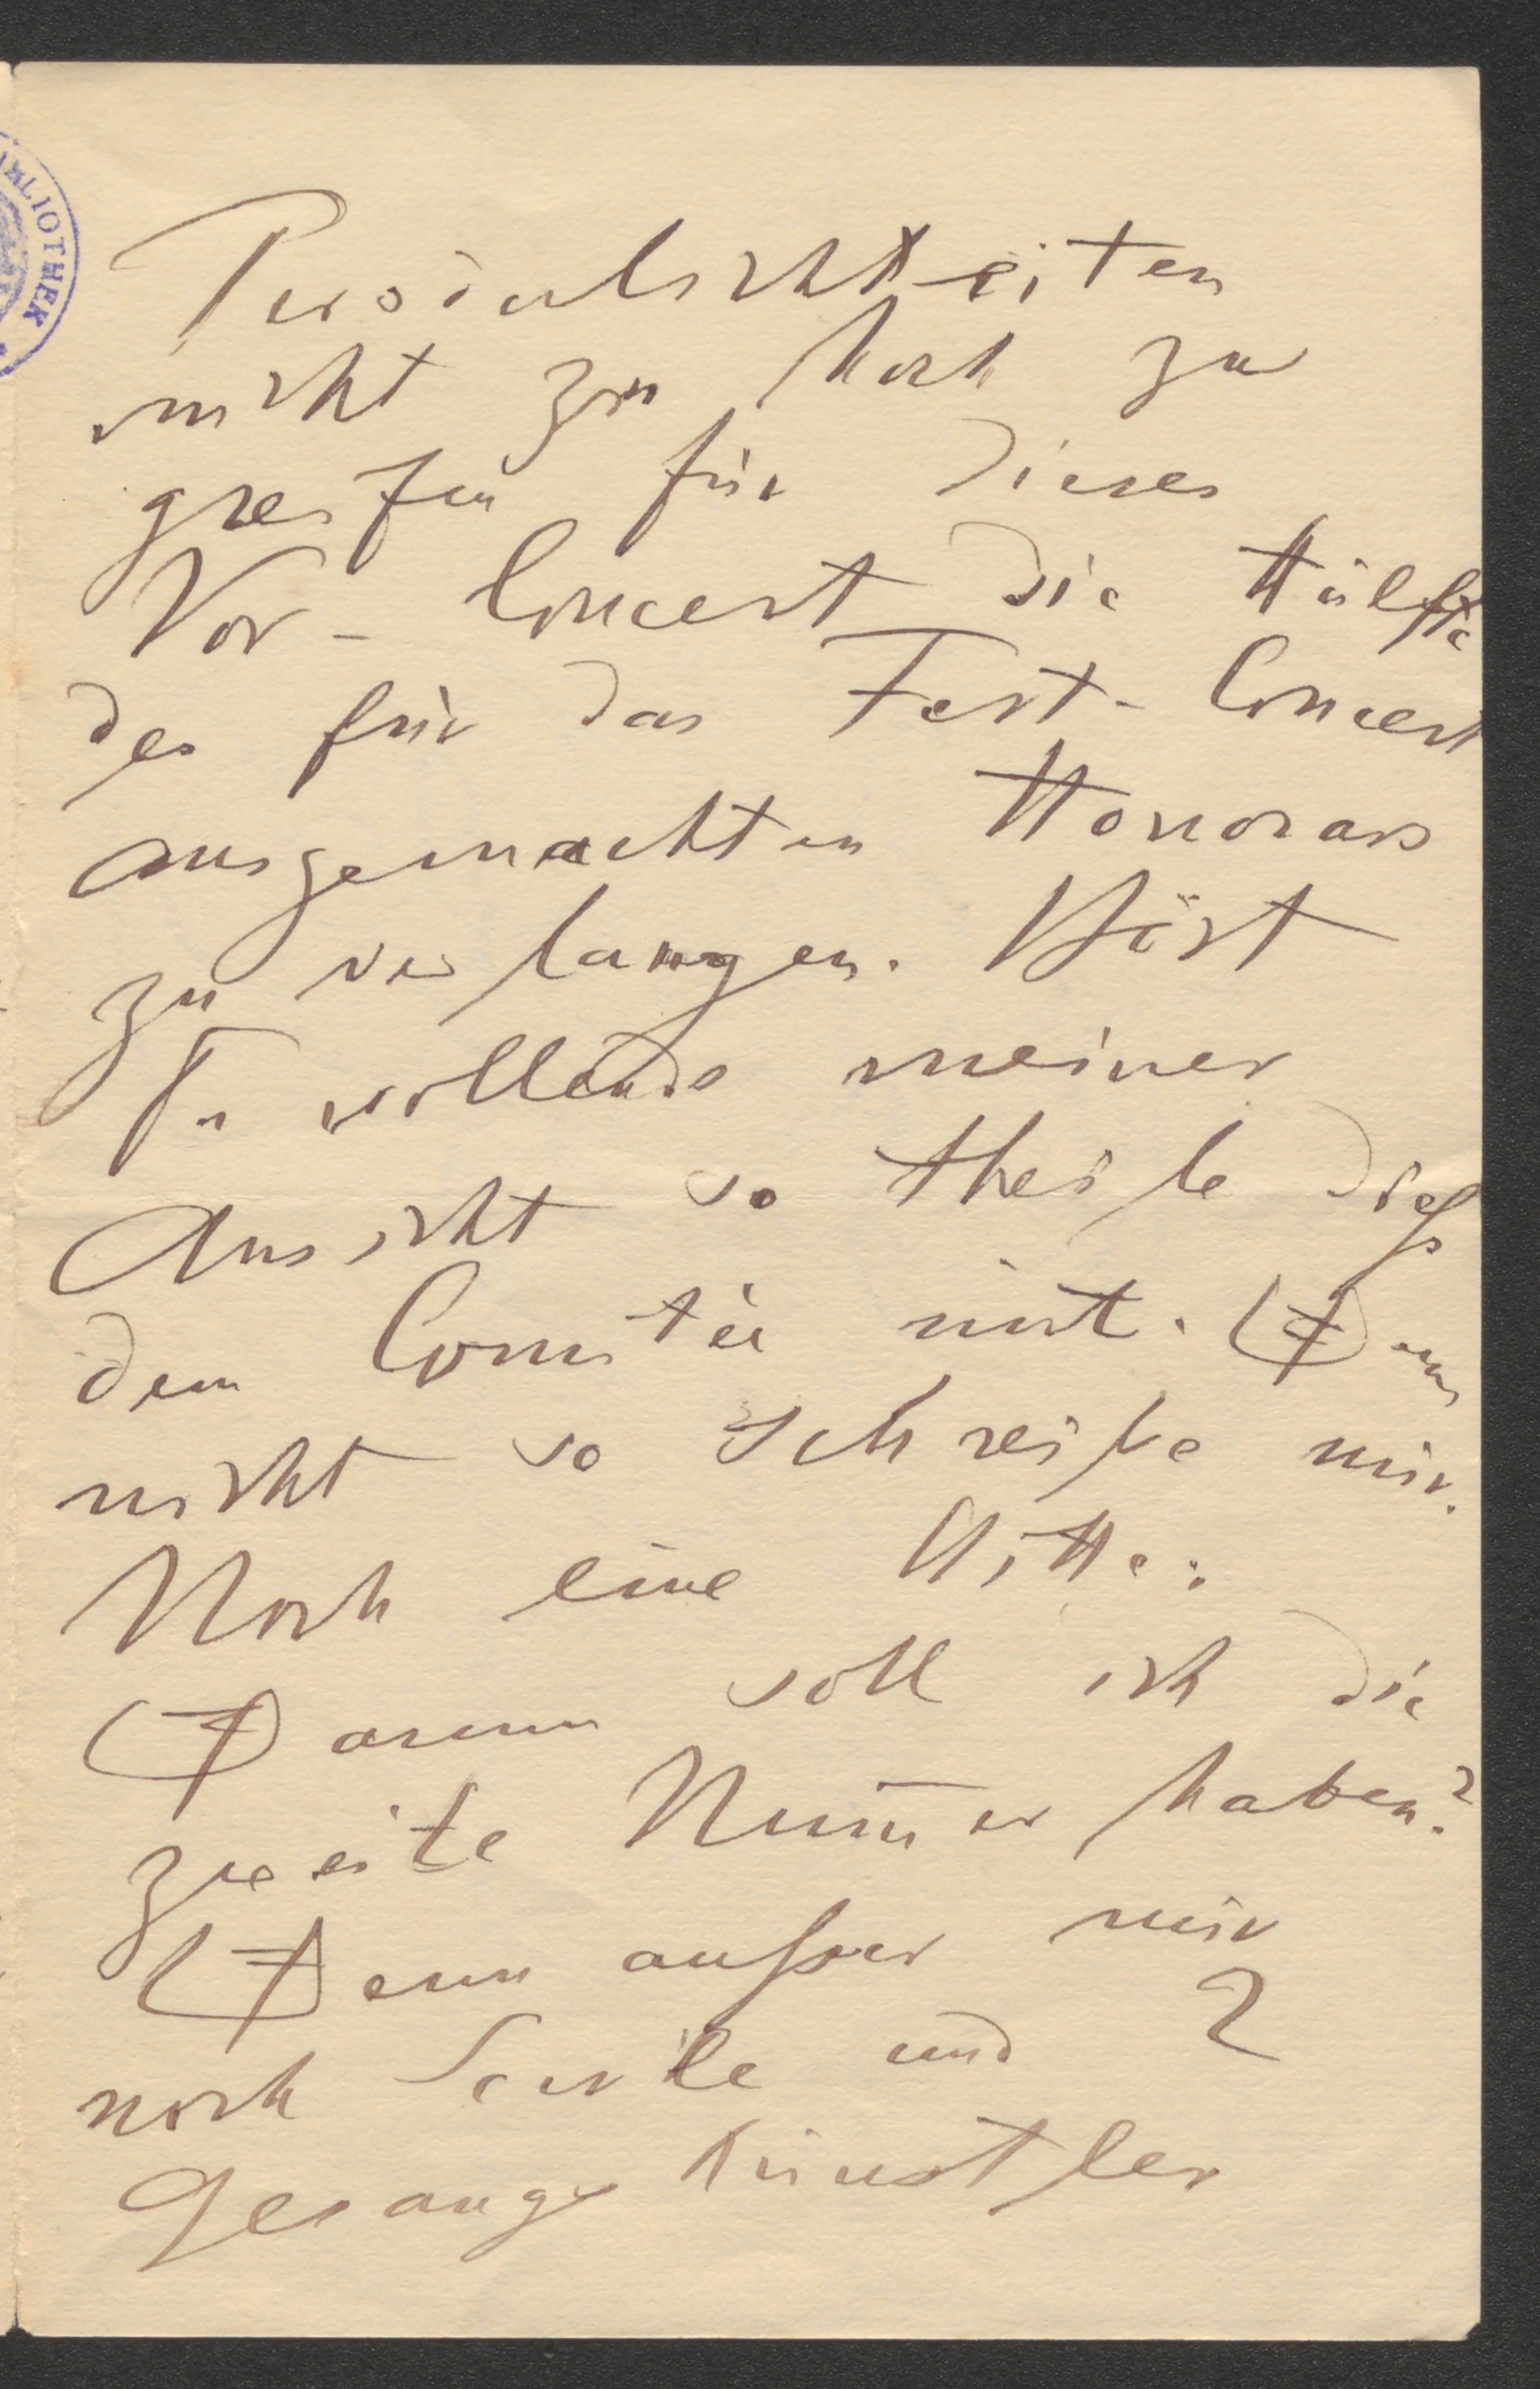 BLIOTHEK
Persönlichkeiten
nicht zu hoch zu
greifen für dieses
Vor-Concert die Hälfte
des für das Fest-Concert
ausgemachten Honorars
zu verlangen. Bist
Du vollends meiner
Ansicht so theile dieß
dem Comitée mit. Wenn
nicht so schreibe mir.
Noch eine Bitte:
Warum soll ich die
zweite Num̄er haben?
Wenn außer mir
noch und 2
Gesangskünstler